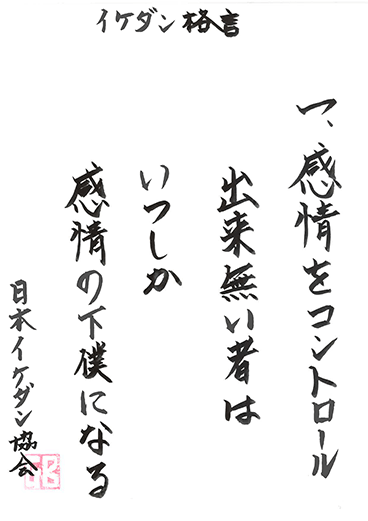 イケダン格言
一、感情をコントロール
出来無い者は
いつしか
感情の下僕になる
日本イケダン協会